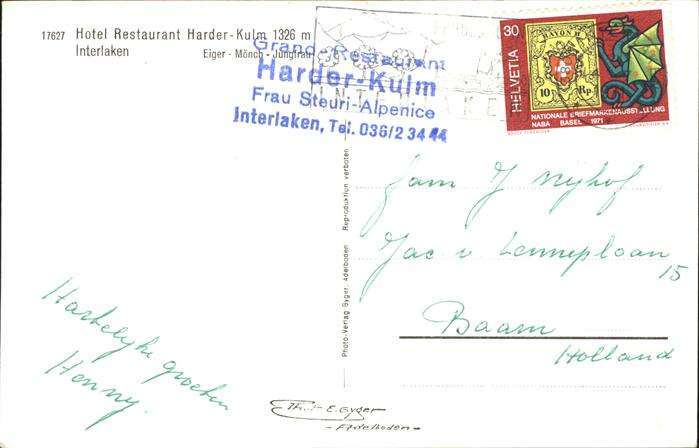 17627 Hotel Restaurant Harder-Kulm 1326 m
Interlaken Eiger - Mönch - Jungfrau
Grand-Restaurant
Harder-Kulm
Frau Steuri-Alpenice
Interlaken, Tel. 036/2 34 44
INTERLAKEN
30
HELVETIA
RAYON II
10 Rp.
NATIONALE BRIEFMARKENAUSSTELLUNG
NABA BASEL 1971
Fam J Nijhof
Jac v Lenneplaan
15
Baarn
Holland
Hartelijke groeten
Henny.
Photo-Verlag Gyger, Adelboden Reproduktion verboten
Phot. E. Gyger
- Adelboden -